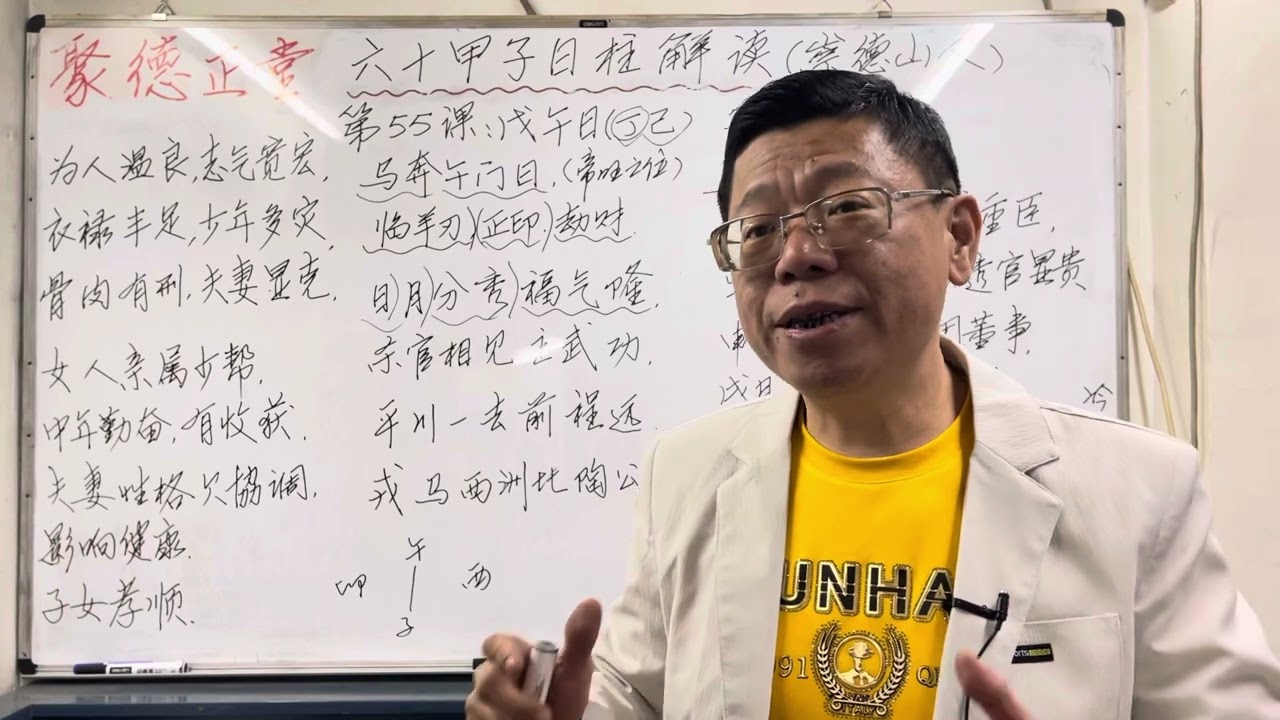 聚德正堂
六十甲子日柱解读(崇德山人)
第55课:戊午日(丁己)
为人温良,志气宽宏,
衣禄丰足,少年多灾,
骨肉有刑,夫妻显克,
女人亲属少帮,
中年勤奋,有收获,
夫妻性格欠協调,
影响健康.
子女孝顺.
马奔午门日,(帝旺之位)
临羊刃)(正印,)劫财.
日)月)分秀)福气隆,
杀官相见主武功,
平川一去前程远,
戎马西洲比陶公
午
卯
酉
子
重臣,
透官显贵
董事,
戊日
UNHA
91
ITALY